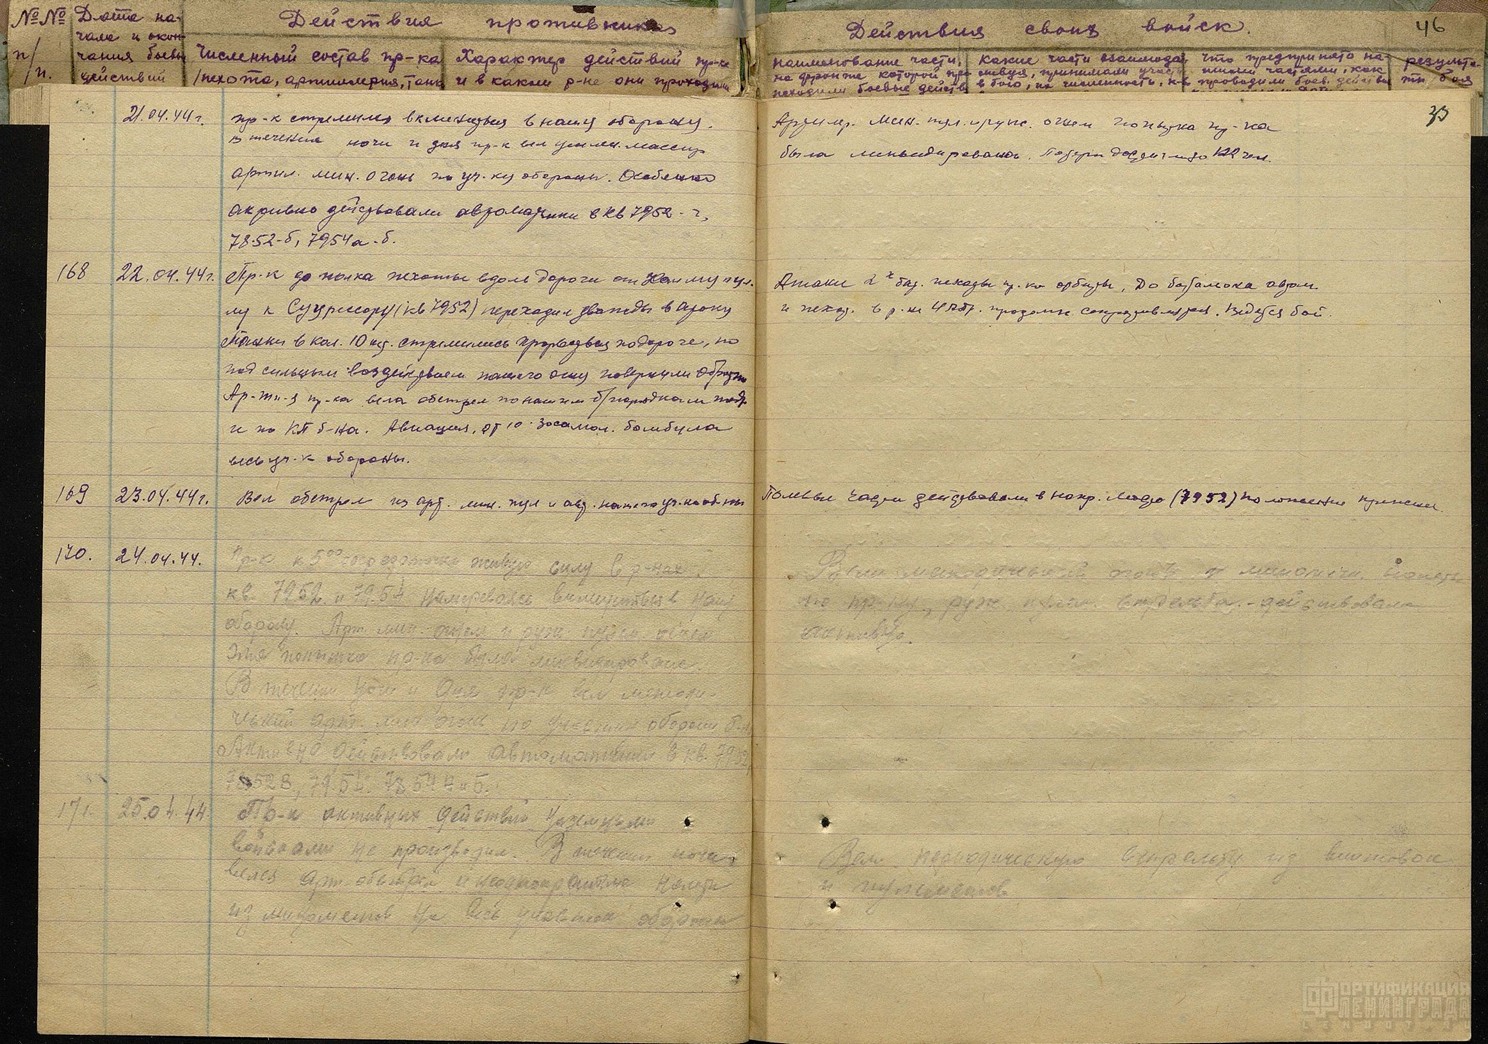 №№ п/п.
Дата на-
чала и окон-
чания боевы
действий
Действия противника
Численный состав пр-ка
/пехота, артиллерия, танк
Характер действий пр-ка
и в каком р-не они проходили
Действия своих войск.
46
наименование части,
на фронте которой про
исходили боевые действ
какие части взаимодей
ствуя, принимали участ
в бою, их численность, н-к
что предпринято на-
шими частями, как
проводили боев. действ
результа-
ты боя
21.04.44г.
пр-к стремился вклиниться в нашу оборону.
В течении ночи и дня пр-к вел усилен. массир
артил. мин. огонь по уч-ку обороны. Особенно
активно действовали автоматчики в кв 7952-г,
7852-б, 7954а-б.
Артилер. мин. пул. и руж. огнем попытка пр-ка
была ликвидирована. Потери
168 22.04.44г.
Пр-к до полка пехоты вдоль дороги от
к Сууркору (кв 7952) переходил дважды в атаку
Танки в кол. 10 шт. стремились прорваться по дороге, но
под сильным воздействием нашего огня повернули обратно
Арт-я пр-ка вела обстрел по нашим б/порядкам
и по КП б-на. Авиация, от 10-30 самол. бомбила
весь уч-к обороны.
Атаки 2х бат. пехоты пр-ка отбиты, До батальона
и пехот. в р-не продолж. сопротивляться. Ведется бой.
169 23.04.44г.
Вел обстрел из арт. мин. пул и авт. нашего уч-ка об-ны
Полевые части действовали в напр. (7952) положение прежнее.
170. 24.04.44.
Пр-к к 5:00 сосредоточил живую силу в р-нах
кв. 7952. и 79.54 намереваясь вклиниться в нашу
оборону. Арт. мин. огнем и руж пулем огнем
эта попытка пр-ка была ликвидирована.
В течении ночи и дня пр-к вел методи-
ческий арт. мин огонь по участку обороны б-на
Активно действовали автоматчики в кв. 7952
7852В, 79.54. и б.
Вели методический огонь из
по пр-ку, руж. стрелки действовали
активно.
171. 25.04.44
Пр-к активных действий наземными
войсками не производил. В течении ночи
велся арт-обстрел и неоднократно
из минометов на весь участок обороны
Вели периодическую стрельбу из винтовок
и пулеметов
ФОРТИФИКАЦИЯ
ЛЕНИНГРАДА